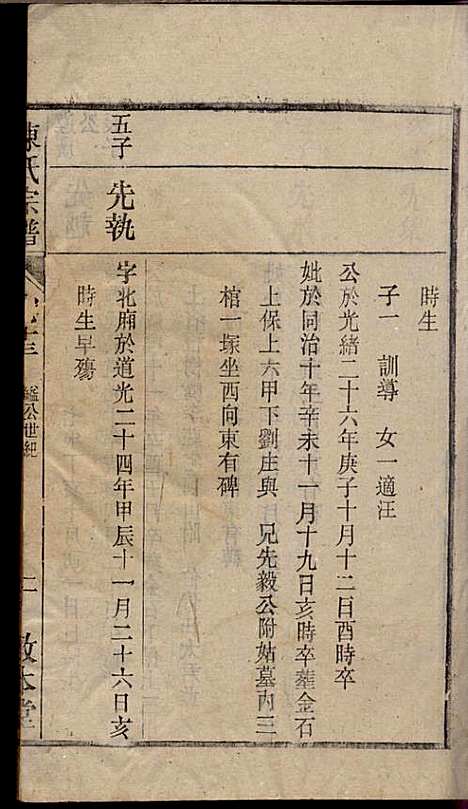 時生
子一　訓導　女一適汪
公於光緒二十六年庚子十月十二日酉時卒
妣於同治十年辛未十一月十九日亥時卒葬金石
上保上六甲下劉庄與　兄先毅公附姑墓內三
棺一塚坐西向東有碑
五子　先執　字北廂於道光二十四年甲辰十一月二十六日亥
時生早殤
陳氏宗譜　鑑公世紀　二　敦本堂